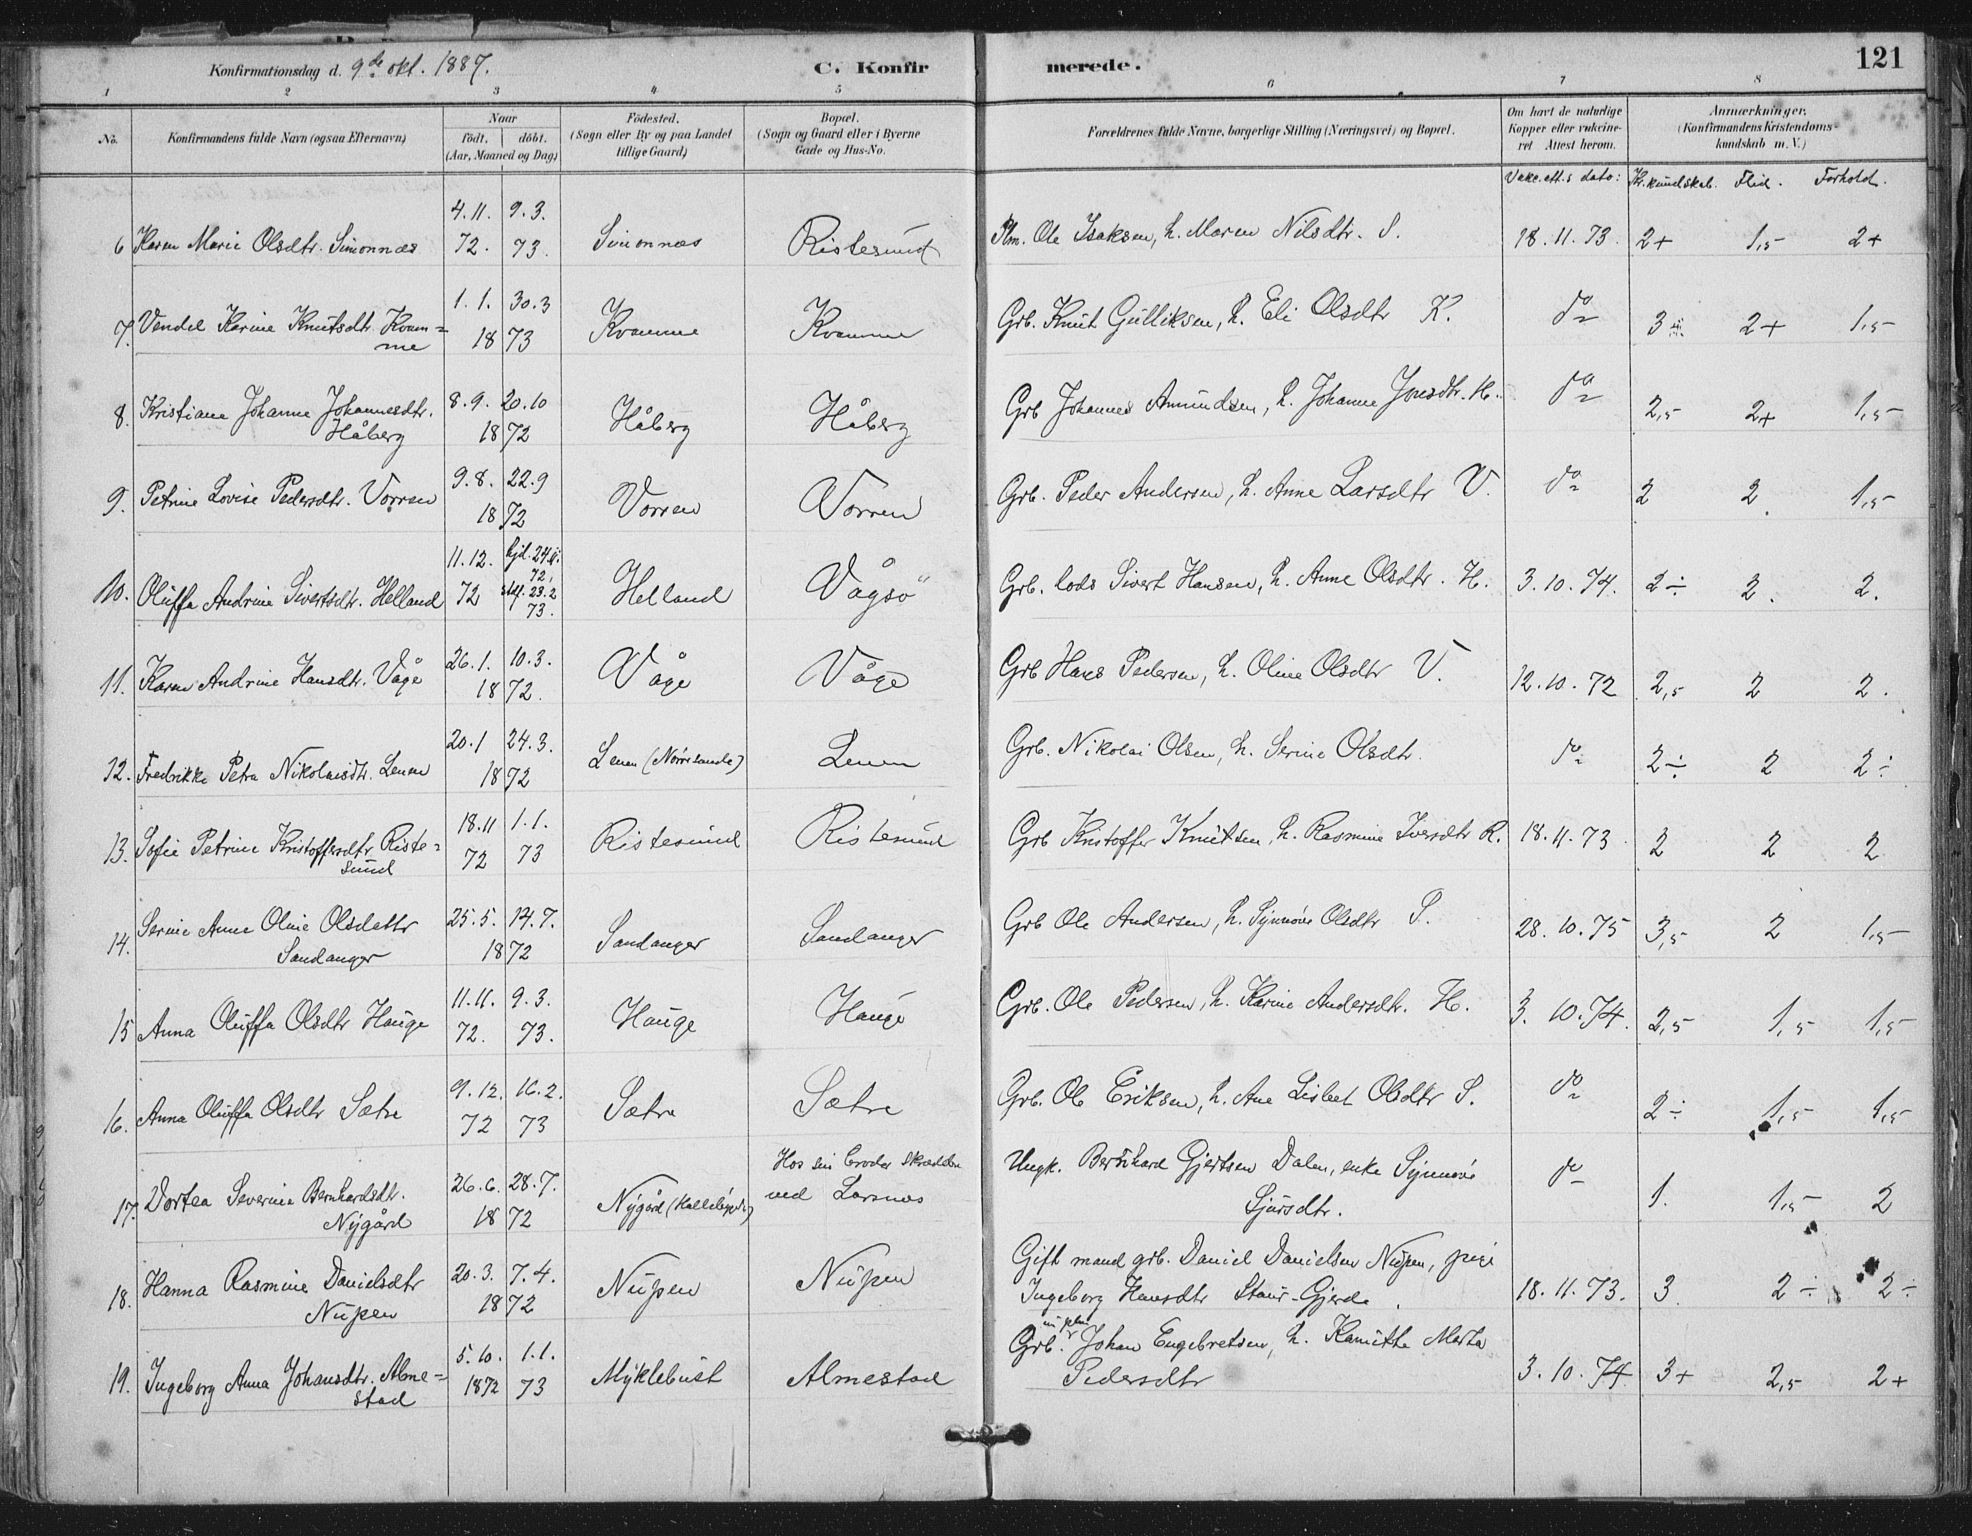 Konfirmationsdag d. 9de okt. 1887. C. Konfirmerede. 121
1 2 3 4 5 6 7 8
No. Konfirmandens fulde Navn (ogsaa Efternavn) Naar födt, döbt. (Aar, Maaned og Dag) Födested. (Sogn eller By og paa Landet tillige Gaard) Bopæl. (Sogn og Gaard eller i Byerne Gade og Hus-No. Forældrenes fulde Navne, borgerlige Stilling (Næringsvei) og Bopæl. Om havt de naturlige Kopper eller vakcineret Attest herom. Anmærkninger, (Konfirmandens Kristendomskundskab m. V.)
Vakc. att.s dato: Kr.kundskab. Flid. Forhold.
6 Karen Marie Olsdtr. Simonnæs 4.11. 72. 9.3. 73. Simonnæs Ristesund Plm. Ole Isaksen, h. Maren Nilsdtr. S. 18.11.73. 2+ 1,5 2+
7. Vendel Karine Knutsdtr. Kvam=
me 1.1. 30.3 1873 Kvamme Kvamme Grb. Knut Gulliksen, h. Eli Olsdtr K. do 3 2+ 1,5
8. Kristiane Johanne Johannesdtr.
Håberg 8.9. 20.10 1872 Håberg Håberg Grb Johannes Amundsen, h. Johanne Jonsdtr. H. do 2,5 2+ 1,5
9. Petrine Lovise Pedersdtr. Vorren 9.8. 22.9 1872 Vorren Vorren Grb. Peder Andersen, h. Anne Larsdtr V. do 2 2. 1,5
10. Oluffa Andrine Sivertsdtr. Helland 11.12. 72 hjd. 24 72, stf. 23.2 73. Helland Vågsö Grb. lods Sivert Hansen, h. Anne Olsdtr. H. 3.10.74. 2÷ 2. 2.
11. Karen Andrine Hansdtr. Våge 26.1. 10.3. 1872. Våge Våge Grb Hans Pedersen, h. Oline Olsdtr V. 12.10.72 2,5 2 2.
12. Fredrikke Petra Nikolaisdtr. Lenen 20.1 24.3. 1872 Lenen (Nörresande) Lenen Grb. Nikolai Olsen, h. Serine Olsdtr. do 2÷ 2 2÷
13. Sofie Petrine Kristoffersdtr. Riste=
sund 18.11 72 1.1. 73 Ristesund Ristesund Grb Kristoffer Knutsen, h. Rasmine Iversdtr R. 18.11.73. 2 2 2
14. Serine Anne Oline Olsdattr
Sandanger 25.5. 14.7. 1872 Sandanger Sandanger Grb Ole Andersen, h. Synnöve Olsdtr S. 28.10.75 3,5 2 1,5
15 Anna Oluffa Olsdtr Hauge 11.11. 72. 9.3. 73. Hauge Hauge Grb. Ole Pedersen, h. Karine Andersdtr. H. 3.10.74. 2,5 1,5 1,5
16. Anna Oluffa Olsdtr Sætre 9.12. 72 16.2. 73 Sætre Sætre Grb. Ole Eriksen, h. Ane Lisbet Olsdtr S. do 2÷ 1,5 1,5
17. Dortea Severine Bernhardsdt.
Nygård 26.6. 28.7. 1872 Nygård Hos sin broder skrædder
ved Larsnæs Ungk. Bernhard Gjertsen Dalen, enke Synnöve
Sjursdtr. do 1. 1,5 2
18. Hanna Rasmine Danielsdtr
Nupen 20.3. 7.4. 1872 Nupen Nupen Gift mand grb. Daniel Danielsen Nupen, pige
Ingeborg Hansdtr Staur-Gjerde. 18.11.73. 3. 2÷ 2÷
19. Ingeborg Anna Johansdtr. Alme=
stad 5.10. 1872 1.1. 73 Myklebust Almestad Grb. Johan Engebretsen, h. Kamitha Marta
Pedersdtr 3.10.74. 3+ 2,5 2+